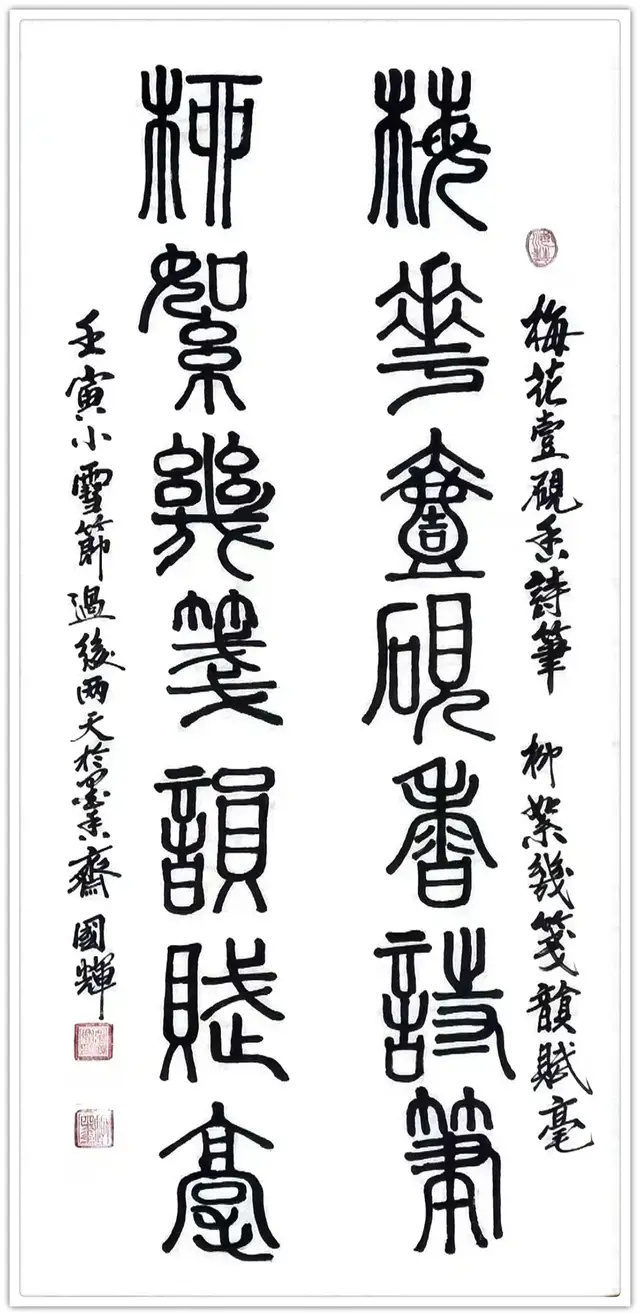 梅花壹硯香詩筆 柳絮幾箋韻賦毫
梅華壹硯香詩筆
柳絮幾箋韻賦毫
壬寅小雪節過後两天於墨香齋國輝